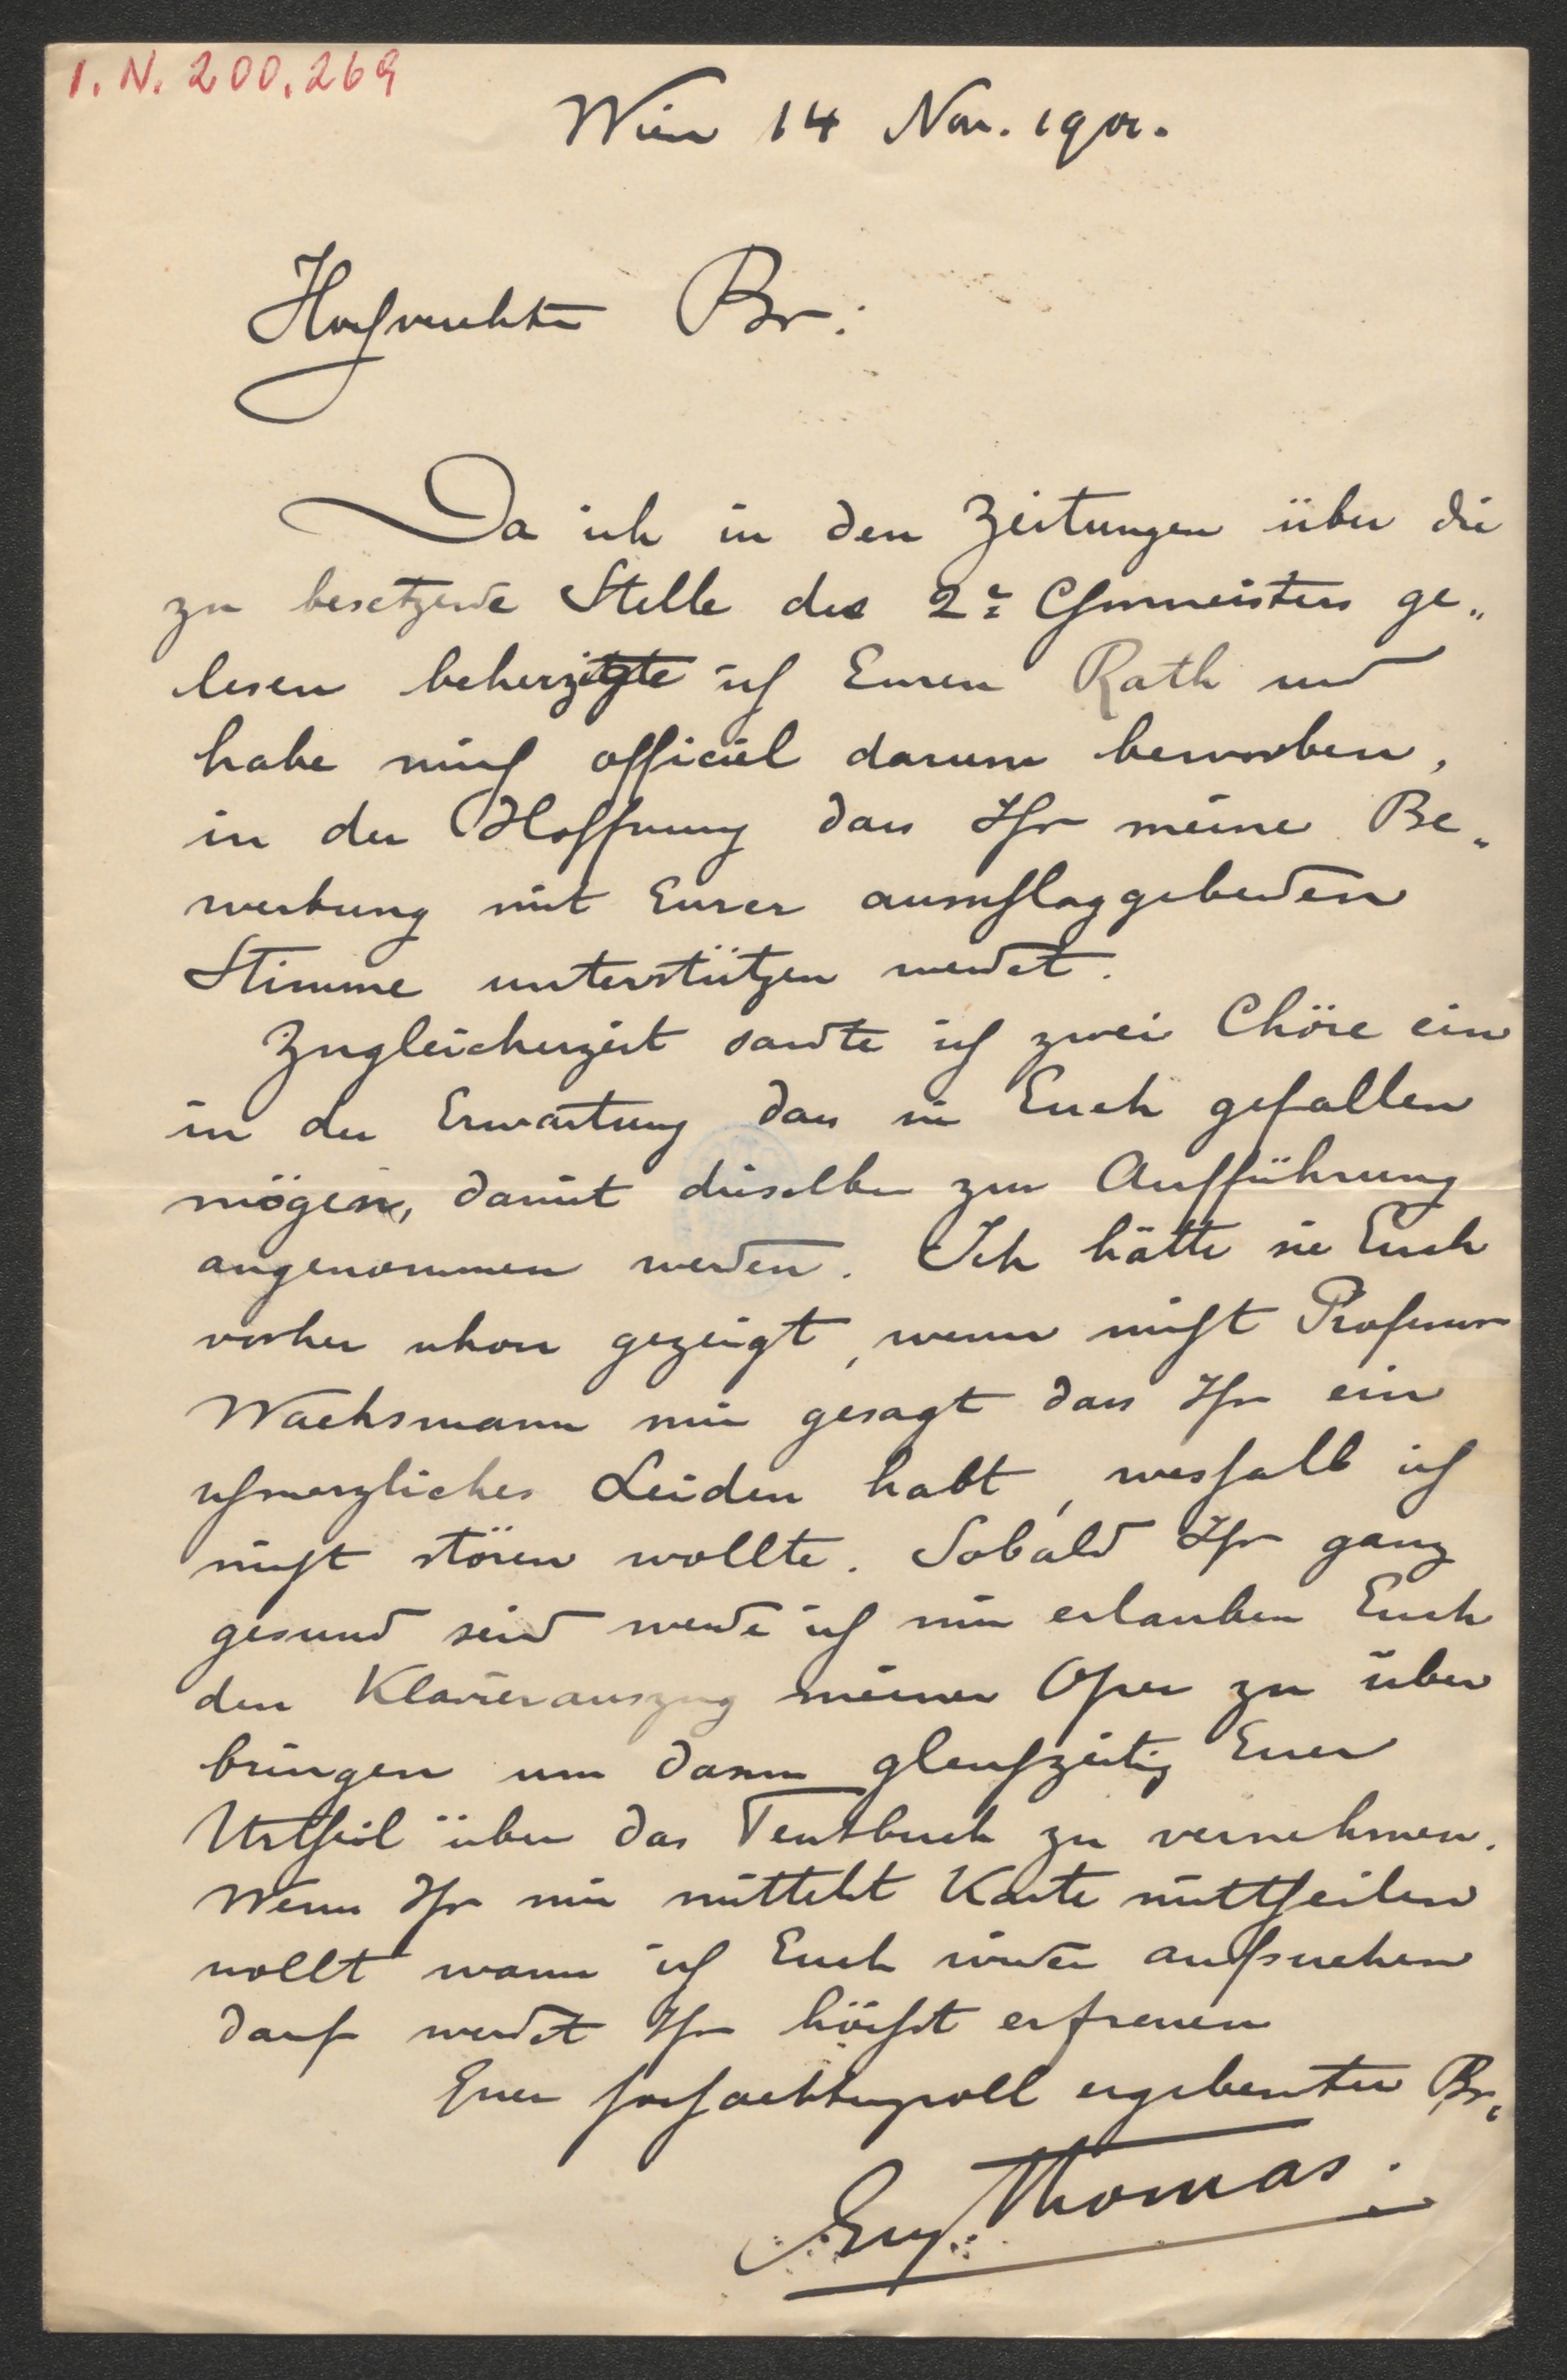 I. N. 200.269
Wien 14 Nov. 1901.
Hochverehrter Br:
Da ich in den Zeitungen über die
zu besetzende Stelle des 2: Chormeisters ge„
lesen beherzigte ich Euren Rath und
habe mich officiel darum beworben,
in der Hoffnung dass Ihr meine Be„
werbung mit Eurer ausschlaggebenden
Stimme unterstützen werdet.
Zugleicherzeit sandte ich zwei Chöre ein
in der Erwartung dass sie Euch gefallen
mögen, damit dieselben zur Aufführung
angenommen werden. Ich hätte sie Euch
vorher schon gezeigt, wenn nicht Professor
Wachsmann mir gesagt dass Ihr ein
schmerzliches Leiden habt, weshalb ich
nicht stören wollte. Sobald Ihr ganz
gesund seid werde ich mir erlauben Euch
den Klavierauszug meiner Oper zu über
bringen um dann gleichzeitig Euer
Urtheil über das Textbuch zu vernehmen.
Wenn Ihr mir mittelst Karte mittheilen
wollt wann ich Euch wieder aufsuchen
darf werdet Ihr höchst erfreuen
Euer hochachtungsvoll ergebenster Br.
Eug. Thomas.